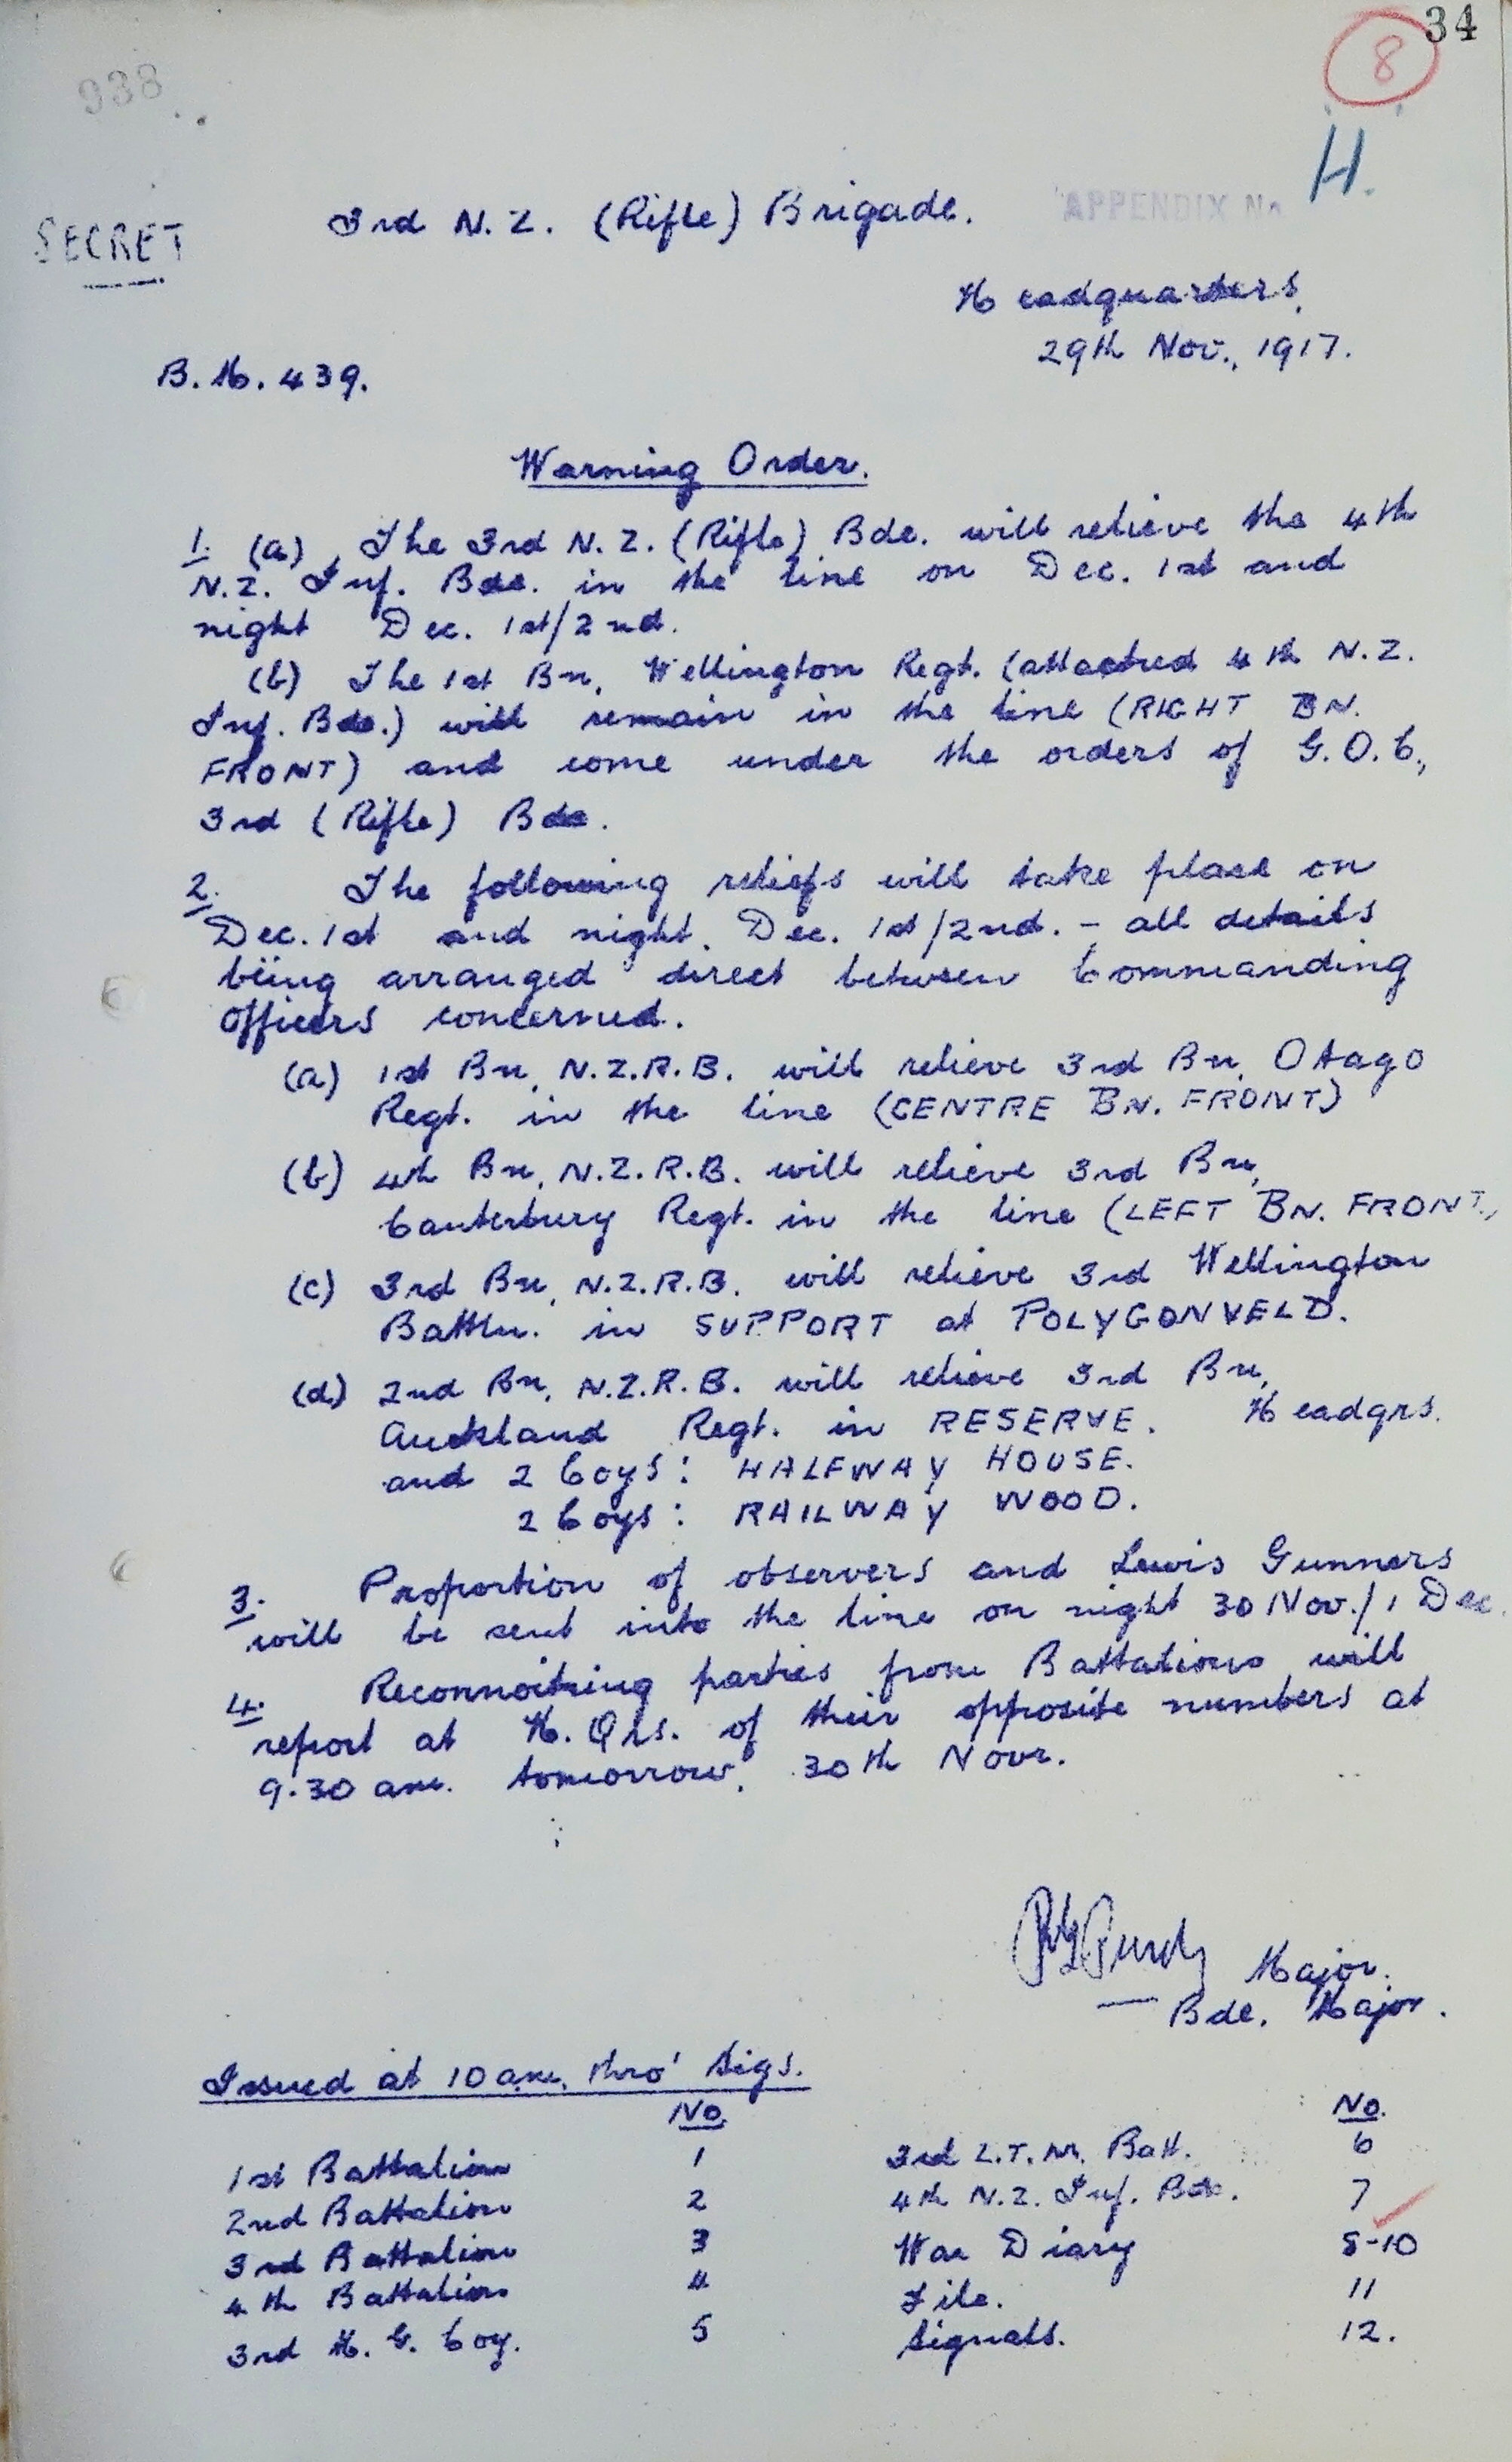 34
8
938
H.
APPENDIX No
SECRET
3rd N.Z. (Rifle) Brigade.
Headquarters,
29th Nov., 1917.
B.M. 439.
Warning Order.
1. (a) The 3rd N.Z. (Rifle) Bde. will relieve the 4th
N.Z. Inf. Bde. in the line on Dec. 1st and
night Dec. 1st/2nd.
(b) The 1st Bn, Wellington Regt. (attached 4th N.Z.
Inf. Bde.) will remain in the line (RIGHT BN.
FRONT) and come under the orders of G.O.C.,
3rd (Rifle) Bde.
2. The following reliefs will take place on
Dec. 1st and night Dec. 1st/2nd. - all details
being arranged direct between Commanding
Officers concerned.
(a) 1st Bn, N.Z.R.B. will relieve 3rd Bn, Otago
Regt. in the line (CENTRE BN. FRONT)
(b) 4th Bn, N.Z.R.B. will relieve 3rd Bn,
Canterbury Regt. in the line (LEFT BN. FRONT)
(c) 3rd Bn, N.Z.R.B. will relieve 3rd Wellington
Battln. in SUPPORT at POLYGONVELD.
(d) 2nd Bn, N.Z.R.B. will relieve 3rd Bn,
Auckland Regt. in RESERVE. Headqrs.
and 2 Coys: HALFWAY HOUSE.
2 Coys: RAILWAY WOOD.
3. Proportion of observers and Lewis Gunners
will be sent into the line on night 30 Nov./1 Dec.
4. Reconnoitring parties from Battalions will
report at H.Qrs. of their opposite numbers at
9.30 am. tomorrow, 30th Novr.
Major.
Bde. Major.
Issued at 10 am. thro' Sigs.
No. No.
1st Battalion 1 3rd L.T.M. Batt. 6
2nd Battalion 2 4th N.Z. Inf. Bde. 7
3rd Battalion 3 War Diary 8-10
4th Battalion 4 File. 11
3rd M.G. Coy. 5 Signals. 12.